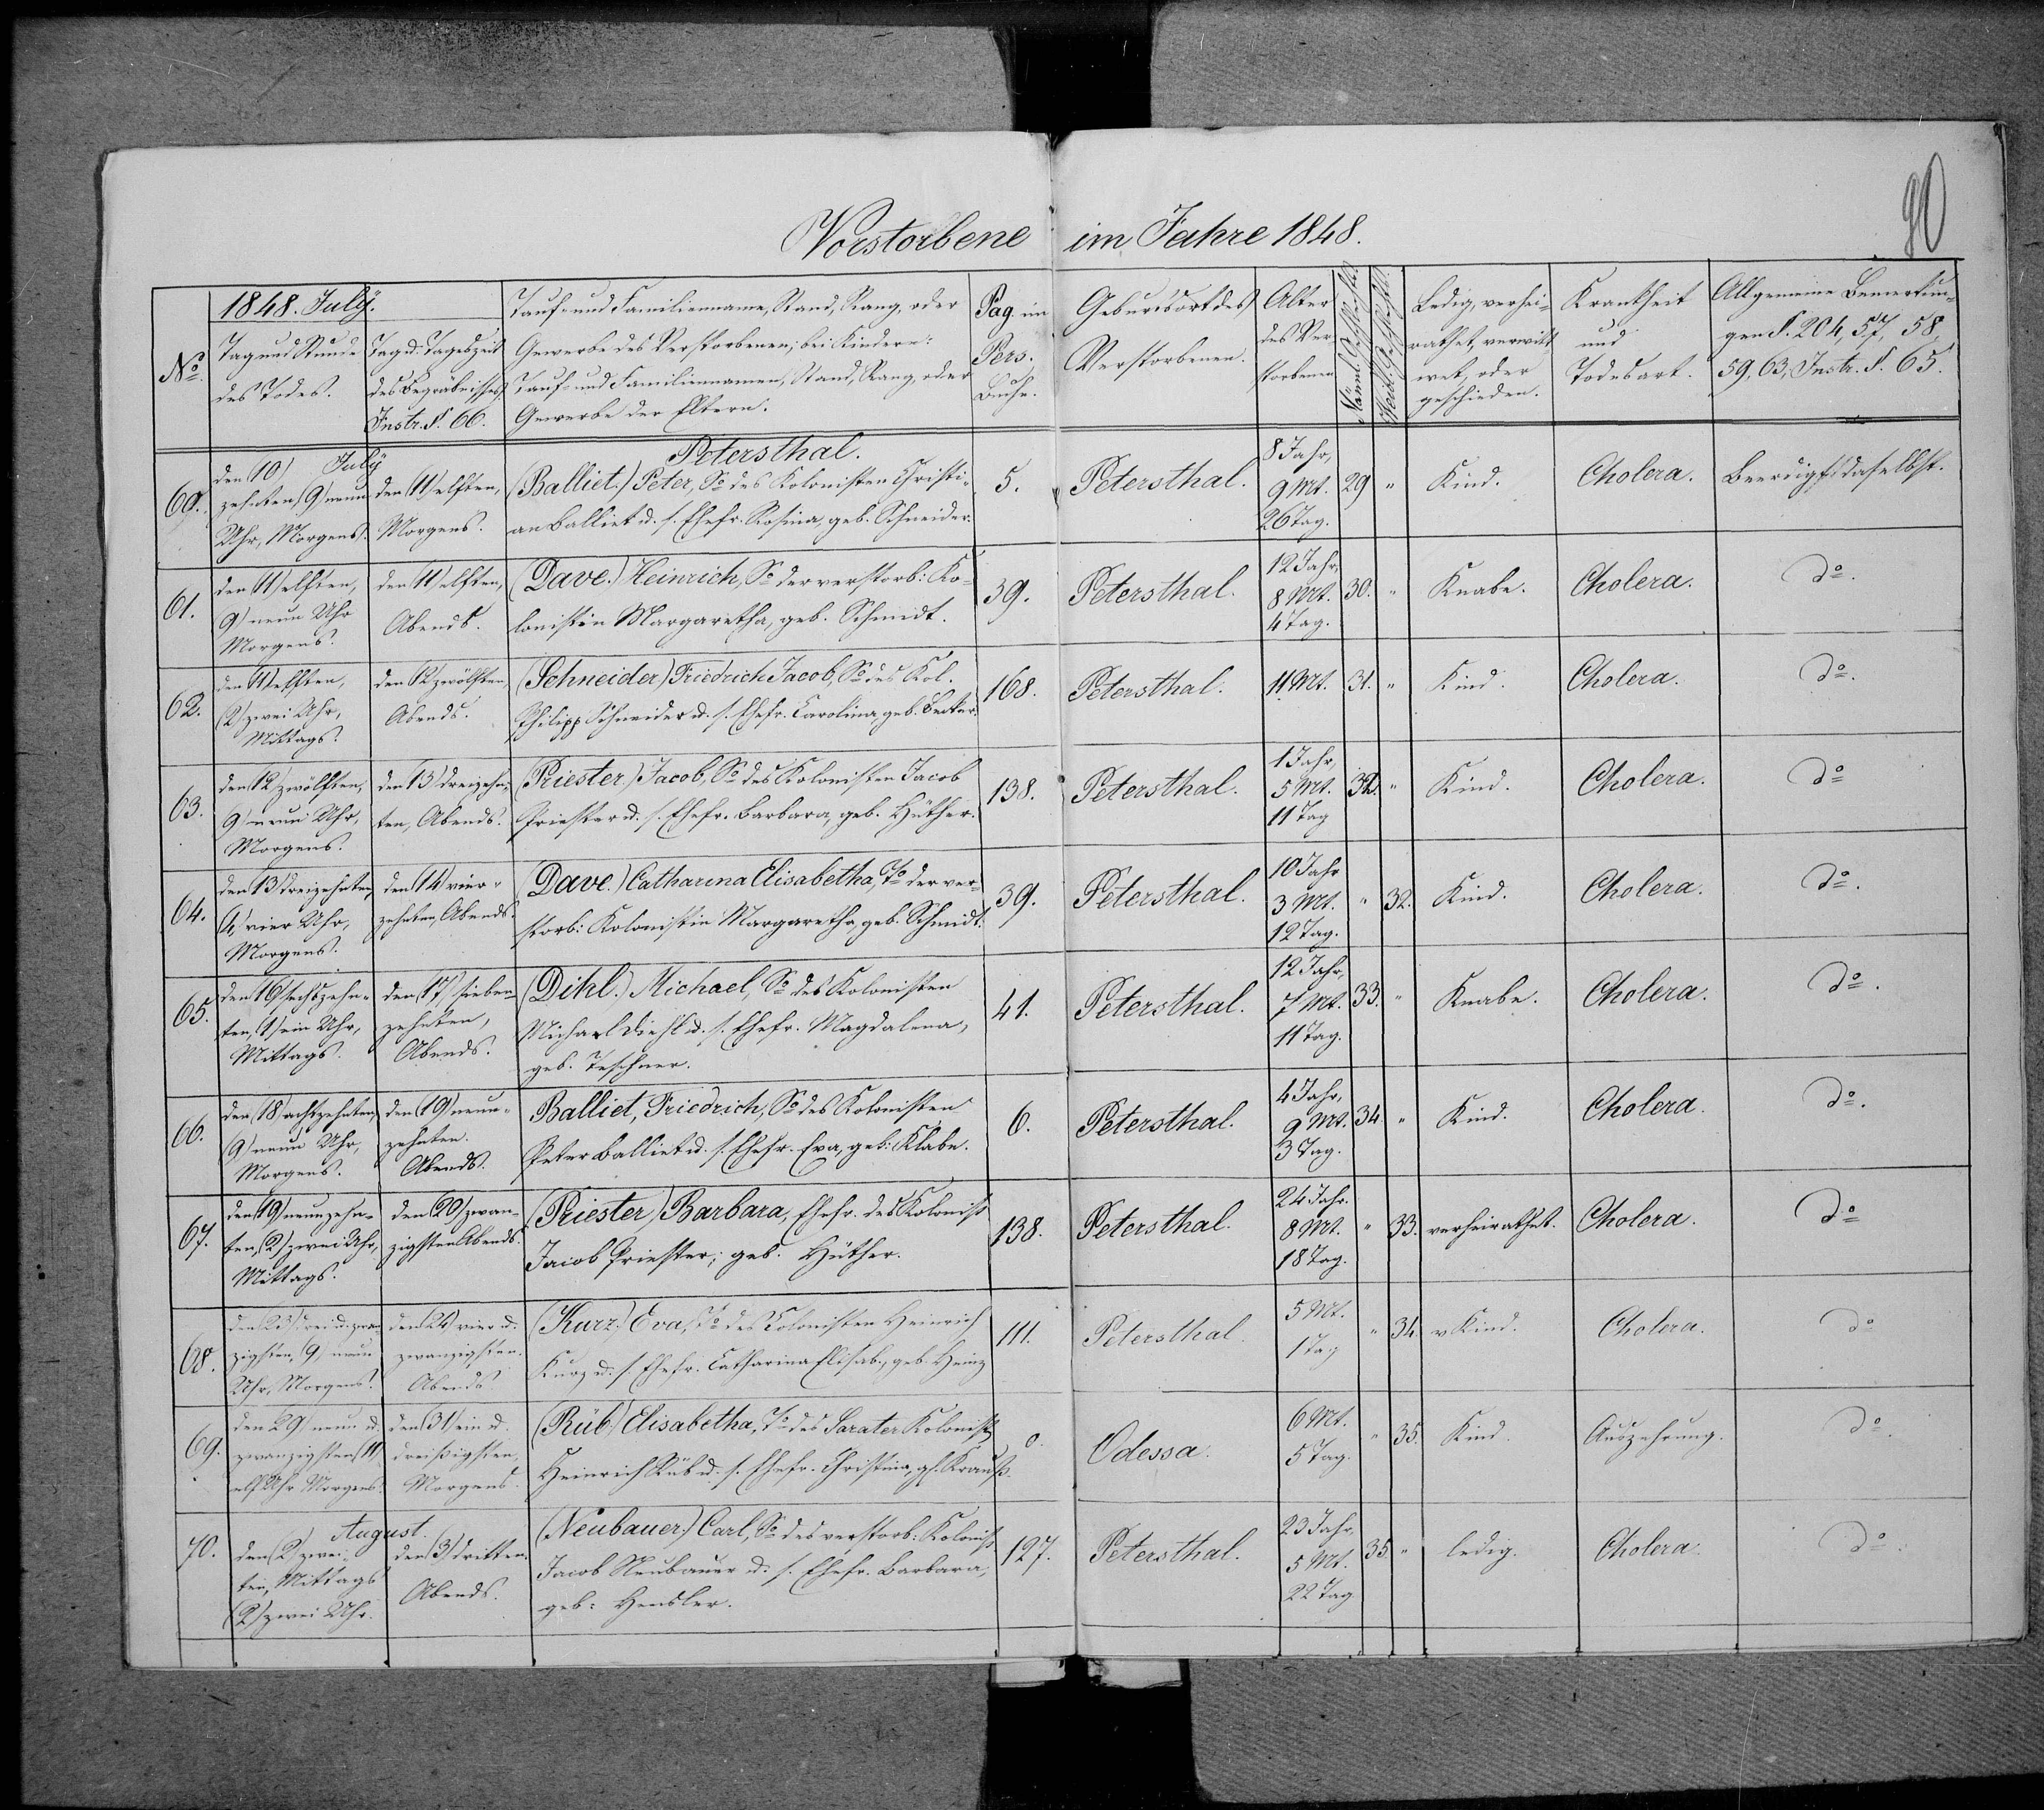 90
Verstorbene im Jahre 1848.
1848. July.
No.
Tag und Stunde
des Todes.
Tag u. Tageszeit
des Begräbnisses
Instr. §. 66.
Tauf- und Familienname, Stand, Rang, oder
Gewerbe des Verstorbenen; bei Kindern:
Tauf- und Familiennamen, Stand, Rang, oder
Gewerbe der Eltern.
Pag. im
Pers.
Buche.
Geburtsort des
Verstorbenen.
Alter
des Ver-
storbenen
Männl. Geschlechts.
Weibl. Geschlechts.
Ledig, verhei-
rathet, verwitt-
wet, oder
geschieden.
Krankheit
und
Todesart.
Allgemeine Bemerkun-
gen §. 204, 57, 58,
59, 63, Instr. §. 65.
Petersthal.
July
60.
den (10)
zehnten (9) neun
Uhr, Morgens.
den (11) elften,
Morgens.
(Balliet.) Peter, So. des Kolonisten Christi-
an Balliet u. s. Ehefr. Rosina, geb. Schneider.
5.
Petersthal.
8 Jahr,
9 Mt.
26 Tag.
29
"
Kind.
Cholera.
Beerdigt: daselbst.
61.
den (11) elften,
9) neun Uhr
Morgens.
den (11) elften,
Abends.
(Dave.) Heinrich, So. der verstorb: Ko-
lonistin Margaretha, geb. Schmidt.
39.
Petersthal.
12 Jahr,
8 Mt.
4 Tag.
30.
"
Knabe.
Cholera.
do.
62.
den (11) elften,
(2) zwei Uhr,
Mittags.
den (12) zwölften,
Abends.
(Schneider) Friedrich Jacob, So. des Kol.
Philipp Schneider u. s. Ehefr. Carolina, geb. Becker.
168.
Petersthal.
11 Mt.
31.
"
Kind.
Cholera.
do.
63.
den (12) zwölften,
9) neun Uhr,
Morgens.
den (13) dreizehn-
ten, Abends.
(Priester.) Jacob, So. des Kolonisten Jacob
Priester u. s. Ehefr. Barbara, geb. Hüther.
138.
Petersthal.
1 Jahr,
5 Mt.
11 Tag
32.
"
Kind.
Cholera.
do
64.
den (13) dreizehnten,
(4) vier Uhr,
Morgens.
den (14) vier-
zehnten, Abends.
(Dave.) Catharina Elisabetha, To. der ver-
storb: Kolonistin Margaretha, geb. Schmidt.
39.
Petersthal.
10 Jahr
3 Mt.
12 Tag.
"
32.
Kind.
Cholera.
do.
65.
den (16) sechszehn-
ten, (1) ein Uhr,
Mittags.
den (17) sieben-
zehnten,
Abends.
(Dihl.) Michael, So. des Kolonisten
Michael Diehl u. s. Ehefr. Magdalena,
geb. Teschner.
41.
Petersthal.
12 Jahr,
7 Mt.
11 Tag.
33.
"
Knabe.
Cholera.
do.
66.
den (18) achtzehnten,
(9) neun Uhr,
Morgens.
den (19) neun-
zehnten.
Abends.
Balliet, Friedrich, So. des Kolonisten
Peter Balliet u. s. Ehefr. Eva, geb: Klabe.
6.
Petersthal.
4 Jahr,
9 Mt.
3 Tag.
34
"
Kind.
Cholera.
do.
67.
den (19) neunzehn-
ten, (2) zwei Uhr,
Mittags.
den (20) zwan-
zigsten Abends.
(Priester) Barbara, Ehefr. des Kolonist
Jacob Priester; geb. Hüther.
138.
Petersthal.
24 Jahr.
8 Mt.
18 Tag.
"
33.
verheirathet.
Cholera.
do
68.
den (23) drei u. zwan-
zigsten, 9, neun
Uhr, Morgens.
den (24) vier u.
zwanzigsten.
Abends.
(Kurz.) Eva, To. des Kolonisten Heinrich
Kurz u. s. Ehefr. Catharina Elisab., geb. Heinz
111.
Petersthal.
5 Mt.
1 Tag
"
34.
Kind.
Cholera.
do
69.
den 29) neun u.
zwanzigsten (11)
elf Uhr Morgens.
den (31) ein u.
dreißigsten,
Morgens.
(Rüb.) Elisabetha, To. des Sarater Kolonist
Heinrich Rüb u. s. Ehefr. Christina, gb. Krauß.
0.
Odessa.
6 Mt.
5 Tag.
"
35.
Kind.
Auszehrung.
do.
August.
70.
den (2) zwei-
ten, Mittags
(2) zwei Uhr.
den (3) dritten.
Abends.
(Neubauer) Carl, So. des verstorb: Kolonist
Jacob Neubauer u. s. Ehefr. Barbara,
geb: Hensler.
127.
Petersthal.
23 Jahr,
5 Mt.
22 Tag
35
"
ledig.
Cholera.
do.